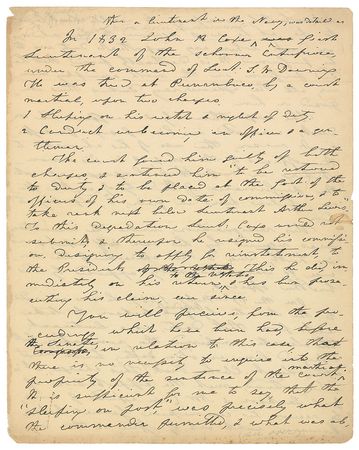 then a lieutenant in the Navy, was detailed as
In 1832 John R Coxe, was First
Lieutenant of the schooner Enterprise,
under the command of Lieut. S. W. Downing
He was tried at Pernambuco, by a court
martial, upon two charges
1 Sleeping on his watch & neglect of duty
2 Conduct unbecoming an officer & a gen
tleman.
The court found him guilty of both
charges, & sentenced him "to be restored
to duty, & to be placed at the foot of the
officers of his own date of commission, & to
take rank next below Lieutenant Arthur Lewis,
To this degradation Lieut. Coxe would not
submit, & therefore he resigned his commissi
on, designing to apply for reinstatement, to
the President This he did im
mediately on his return, & has been prose
cuting his claim, ever since.
You will perceive, from the pro
ceedings which have been had, before
the Senate, in relation to this case, that
there is no necessity to inquire into the
propriety of the sentence of the court martial
It is sufficient for me to say, that the
"sleeping on post" was precisely what
the commander permitted, & what was ab